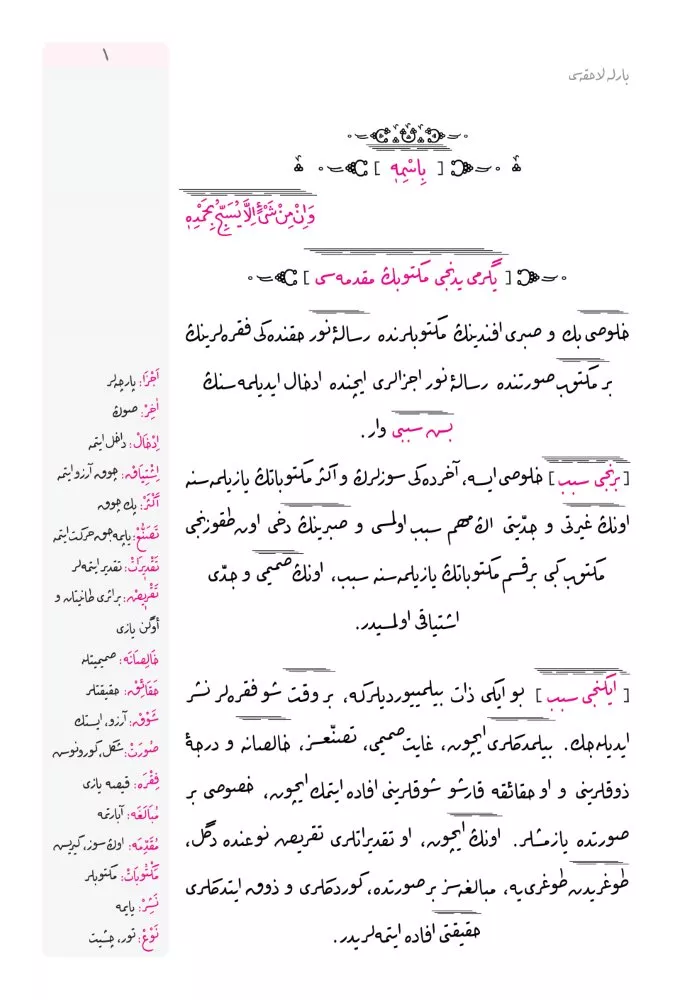 ١
بارلە لاحقەسی
[ بِاسْمِهِ ]
وَاِنْ مِنْ شَیْءٍ اِلَّا يُسَبِّحُ بِحَمْدِهِ
[ يگرمی يدنجی مكتوبڭ مقدمەسی ]
خلوصی بك و صبری افندينڭ مكتوبلرنده رسالۀ نور حقنده‌كی فقره‌لرينڭ
بر مكتوب صورتنده رسالۀ نور اجزالری ايچنده ادخال ايديلمه‌سنڭ
بش سببی وار.
[برنجی سبب] خلوصی ايسه، آخرده‌كی سوزلرڭ و اكثر مكتوباتڭ يازيلمه‌سنه
اونڭ غيرتی و جدّيتی اڭ مهم سبب اولمسی و صبرينڭ دخی اون طقوزنجی
مكتوب كبی بر قسم مكتوباتڭ يازيلمه‌سنه سبب، اونڭ صميمی و جدّی
اشتياقی اولمسيدر.
[ايكنجی سبب] بو ايكی ذات بيلمييورديلركه، بر وقت شو فقره‌لر نشر
ايديله‌جك. بيلمدكلری ايچون، غايت صميمی، تصنّعسز، خالصانه و درجۀ
ذوقلرينی و او حقائقه قارشو شوقلرينی افاده ايتمك ايچون، خصوصی بر
صورتده يازمشلر. اونڭ ايچون، او تقديراتلری تقريض نوعنده دگل،
طوغريدن طوغری‌يه، مبالغه‌سز بر صورتده، كوردكلری و ذوق ايتدكلری
حقيقتی افاده ايتمه‌لريدر.
اَجْزَا: پارچه‌لر
اٰخِرْ: صوڭ
اِدْخَالْ: داخل ايتمه
اِشْتِيَاقْ: چوق آرزو ايتمه
اَكْثَرْ: پك چوق
تَصَنُّعْ: ياپمه‌جق حركت ايتمه
تَقْدِيرَاتْ: تقدير ايتمه‌لر
تَقْرِيضْ: بر اثری طانيتان و
أوگن يازی
خَالِصَانَه: صميميتله
حَقَائِقْ: حقيقتلر
شَوْقْ: آرزو، ايستك
صُورَتْ: شكل، كورونوش
فِقْرَه: قيصه يازی
مُبَالَغَه: آبارتمه
مُقَدِّمَه: اوڭ سوز، گيريش
مَكْتُوبَاتْ: مكتوبلر
نَشِرْ: يايمه
نَوْعْ: تور، چشيت